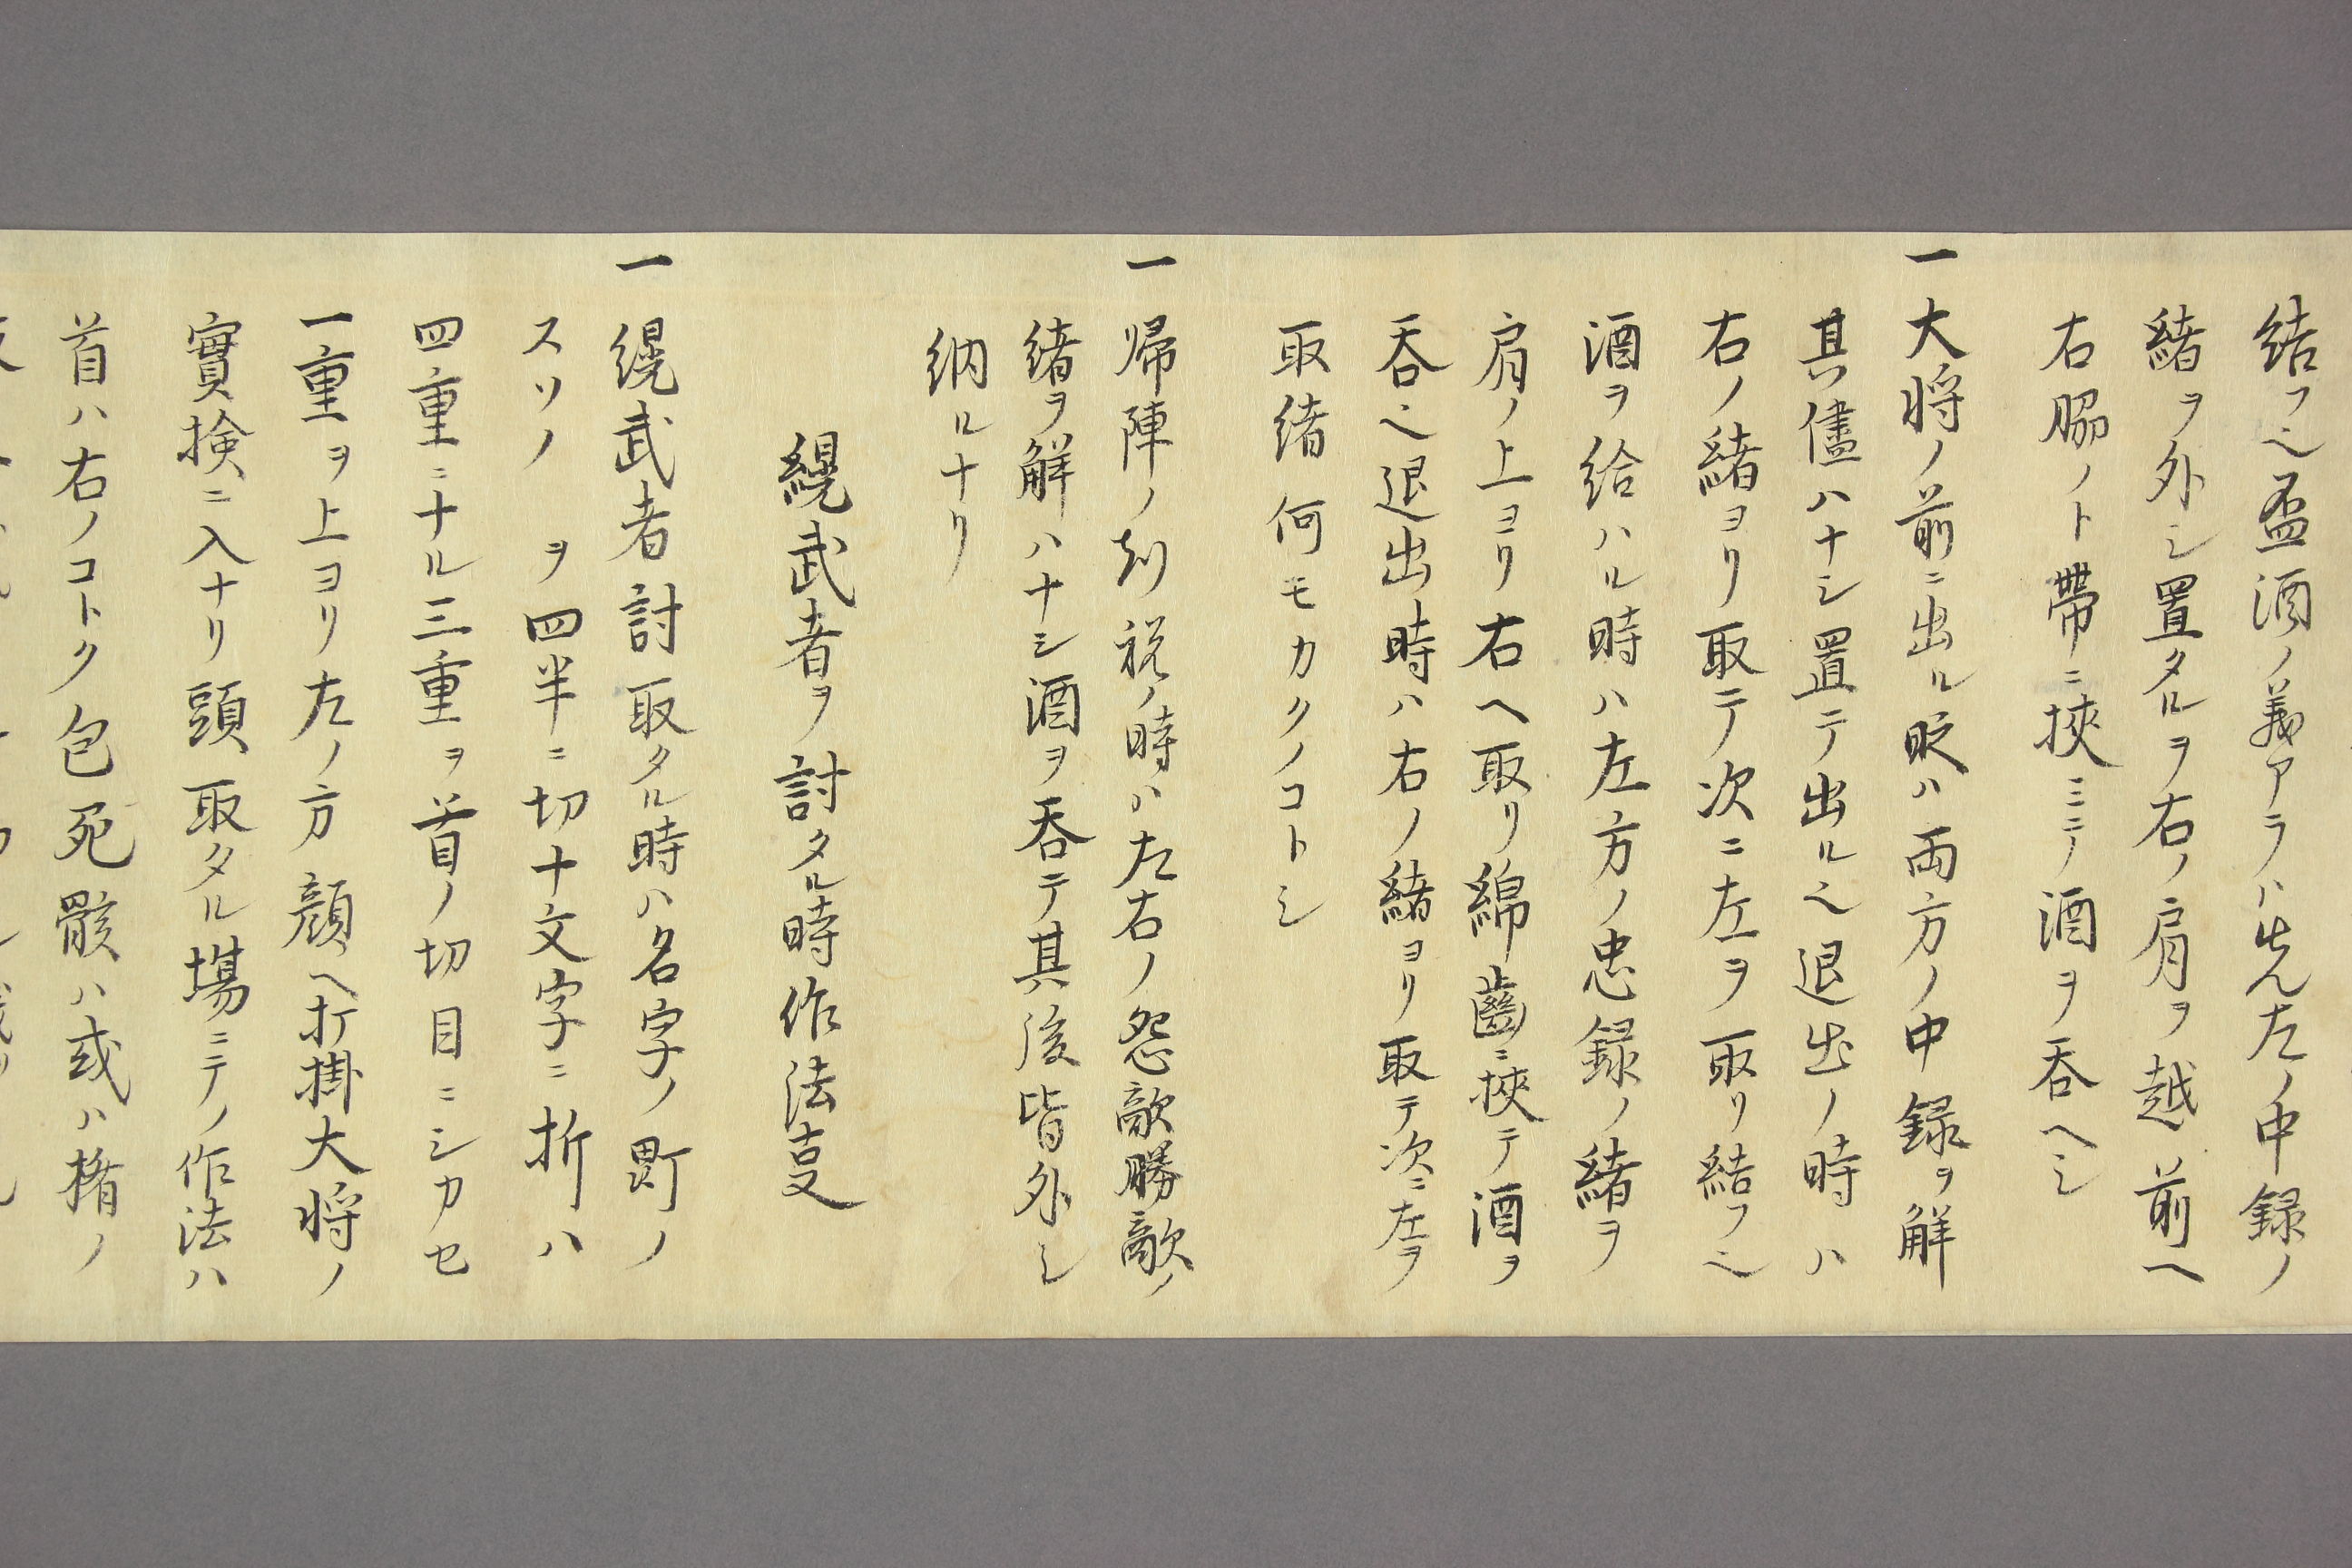 結フヘ盃酒ノ義アラハ先左ノ中録ノ
緒ヲ外シ置タルヲ右ノ肩ヲ越前ヘ
右脇ノト帯ニ挾ミテ酒ヲ呑ヘシ
一大将ノ前ニ出ル时ハ両方ノ中録ヲ解
其儘ハナシ置テ出ルヘ退出ノ時ハ
右ノ緒ヨリ取テ次ニ左ヲ取リ結フヘ
酒ヲ給ハル時ハ左方ノ忠録ノ緒ヲ
肩ノ上ヨリ右ヘ取リ綿齒ニ挾テ酒ヲ
呑ヘ退出時ハ右ノ緒ヨリ取テ次ニ左ヲ
取緒何モカクノコトシ
一帰陣ノ刻祝ノ時ハ左右ノ怨敵勝敵ノ
緒ヲ解ハナシ酒ヲ呑テ其後皆外シ
納ルナリ
縨武者ヲ討タル時作法叓
一縨武者討取タル時ハ名字ノ町ノ
スソノ ヲ四半ニ切十文字ニ折ハ
四重ニナル三重ヲ首ノ切目ニシカセ
一重ヲ上ヨリ左ノ方顔ヘ打掛大将ノ
實撿ニ入ナリ頭取タル場ニテノ作法ハ
首ハ右ノコトク包死骸ハ或ハ楯ノ